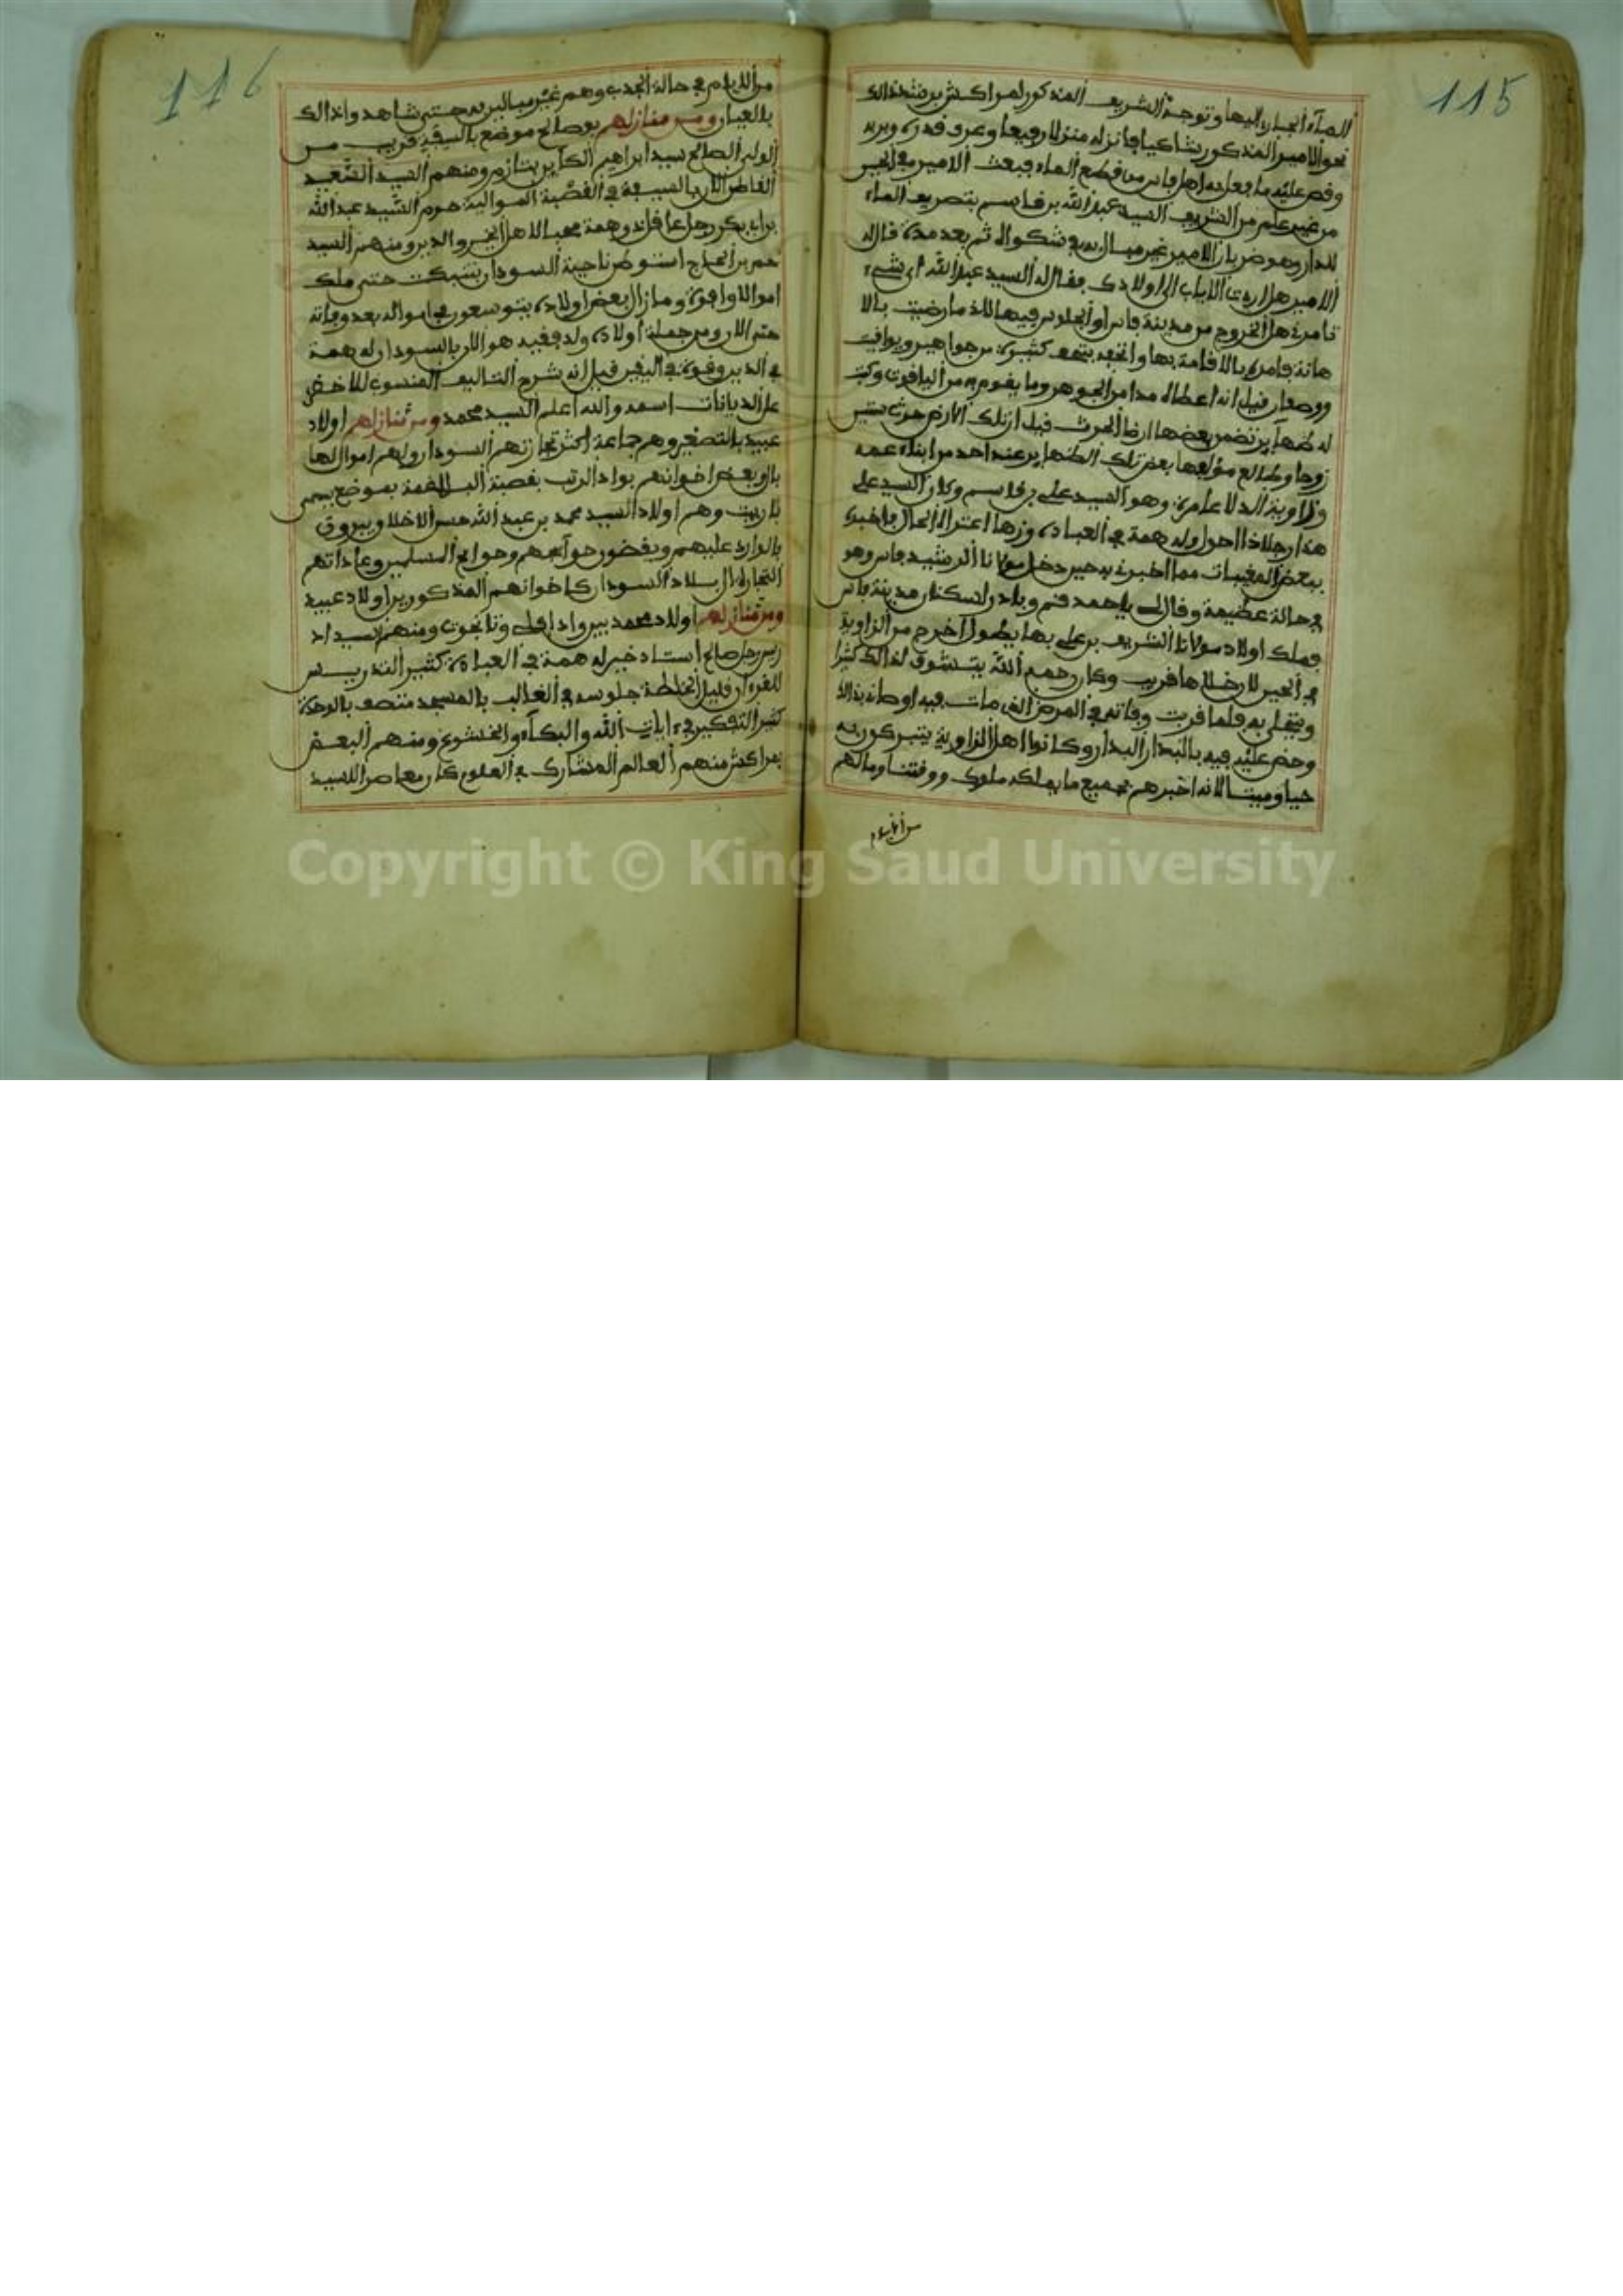 115
الماء الجار اليها وتوجه الشريف المذكور لمراكش من ذلك
نحو الامير المذكور شاكيا فانزله منزلا رفيعا وعرف قدره وبره
وقص عليه ما فعل به اهل فاس من قطع الماء فبعث الامير في الحين
من غير علم من الشريف السيد عبد الله بن قاسم بتصريف الماء
للدار وهو ضربان الامير غير مبال به في شكواه ثم بعد مدة قال له
الامير هل اردت الاياب الى اولادك فقال له السيد عبد الله اي شيء
تامرني هل الخروج من مدينة فاس او الجلوس فيها لاذ ما رضيت بالا
هانة فامره بالاقامة بها واتحفه بتحف كثيرة من جواهر ويواقيت
ووصفان قيل انه اعطاه مدا من الجوهر وما يقوم به من الياقوت وكتب
له ظهاير تضمن بعضها ارض الحرث قيل ان تلك الارض حرث ستين
زوجا وطالع مؤلفها بعض تلك الظهاير عند احد من ابناء عمه
وزاوية الدلا عامرة وهو السيد علي بن قاسم وكان السيد علي
هذا رجلا ذا احوال وله همة في العبادة وزهد اعتزال الحال فاخبره
ببعض المغيبات مما اخبرني به حين دخل مولانا الرشيد فاس وهو
في حالة عظيمة وقال لي يا احمد قم وبادر لسكنان مدينة فاس
فملك اولاد مولانا الشريف بن علي بها يطول اخرج من الزاوية
في الحين لان خلاها قريب وكان رحمه الله يتشوف لذالك كثيرا
ويتغلى به فلما قربت وفاته في المرض الذي مات فيه اوصانه بذالك
وحض عليه فيه بالبدار البدار وكانوا اهل الزاوية يتبركون به
حيا وميتا لانه اخبرهم بجميع ما يملكه ملوك ووقتنا وما لهم
من الايام
116
من الايام في حالة الجذب وهم غير مبالين به حتى شاهدوا ذالك
بالعيان ومن منازلهم بوصالح موضع بالسيفة قريب من
الولي الصالح سيد ابراهيم الكاين بتازم ومنهم السيد السعيد
القاطن الان بالسيفة في القصبة الموالية حرم السيد عبد الله
بن ابي بكر رجل عاقل ذو همة محبا لاهل الخير والدين ومنهم السيد
حم بن الحاج استوطن ناحية السودان بتنبكت حتى ملك
اموالا وافرة وما زال بعض اولاده يتوسعون في امواله بعد وفاته
حتى الان ومن جملة اولاده ولد فقيه هو الان بالسودان له همة
في الدين وقوة في اليقين قيل انه شرح التاليف المنسوب للاخضري
على الديانات اسمه والله اعلم السيد محمد ومن منازلهم اولاد
عبيد بالتصغير وهم جماعة اكثر تجارتهم السودان ولهم اموال لها
بال وبعض اخوانهم بواد الرتب بقصبة البلاغمة بموضع يسمى
تاريت وهم اولاد السيد محمد بن عبد الله حسن الاخلاق يبروق
بالوارد عليهم ويقضون حوائجهم وحوائج المسلمين وعاداتهم
التجارة الى بلاد السودان كاخوانهم المذكورين اولاد عبيد
ومن منازلهم اولاد محمد بين واد افل وتانجوت ومنهم سيد اد
ريس رجل صالح استاد خير له همة في العبادة كثير التدريس
للقرءان قليل الخلطة جلوسه في الغالب بالمسجد متصف بالوحدة
كثير التفكير في ءايات الله والبكاء والخشوع ومنهم البعض
بمراكش منهم العالم المشارك في العلوم كان معاصرا للسيد
Copyright © King Saud University